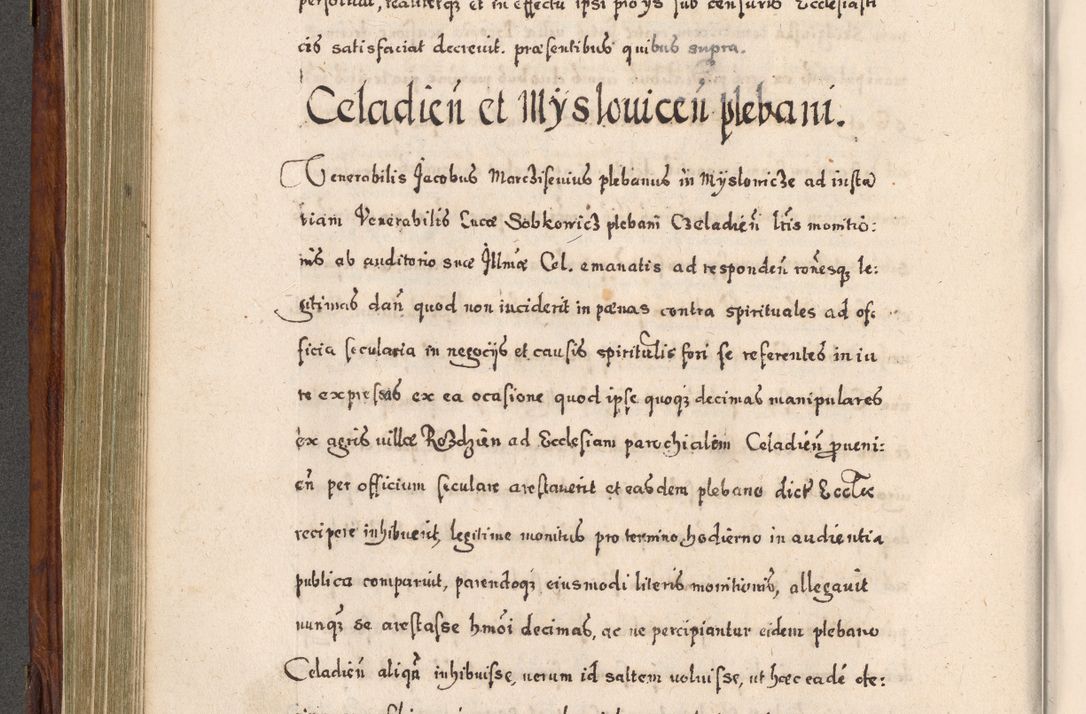 persolvat, realiterq₃ et in effectu ipsi pro ijs sub censuris Ecclesiasti
cis satisfaciat decrevit. præsentibus quibus supra.
Celadień et Mÿslouiceń plebani.
Venerabilis Jacobus Marczisevius plebanus in Myslowicze ad insta
tiam Venerabilis Lucæ Sobkowicz plebani Czeladień lr̃is monitio:
nis ab auditorio suæ Illmæ Cel. emanatis ad responden̄ rōnesq₃ le:
gitimas dań quod non inciderit in pænas contra spirituales ad of:
ficia secularia in negocijs et causis spiritualis fori se referentes in iu
re expressas ex ea ocasione quod ipse quoq₃ decimas manipulares
ex agris villæ Rozdzien ad Ecclesiam parochialem Celadień proueni:
eń per officium seculare arestauerit et easdem plebano dictæ Eccl̃æ
recipere inhibuerit, legitime monitus pro termino hodierno in audientia
publica comparuit, parendoq₃ eiusmodi literis monitionis, allegauit
nunq₃ se arestasse hmōi decimas, ac ne percipiantur eidem plebano
Celadień aliqā inhibuisse, uerum id saltem uoluisse, ut hæc eadē de: